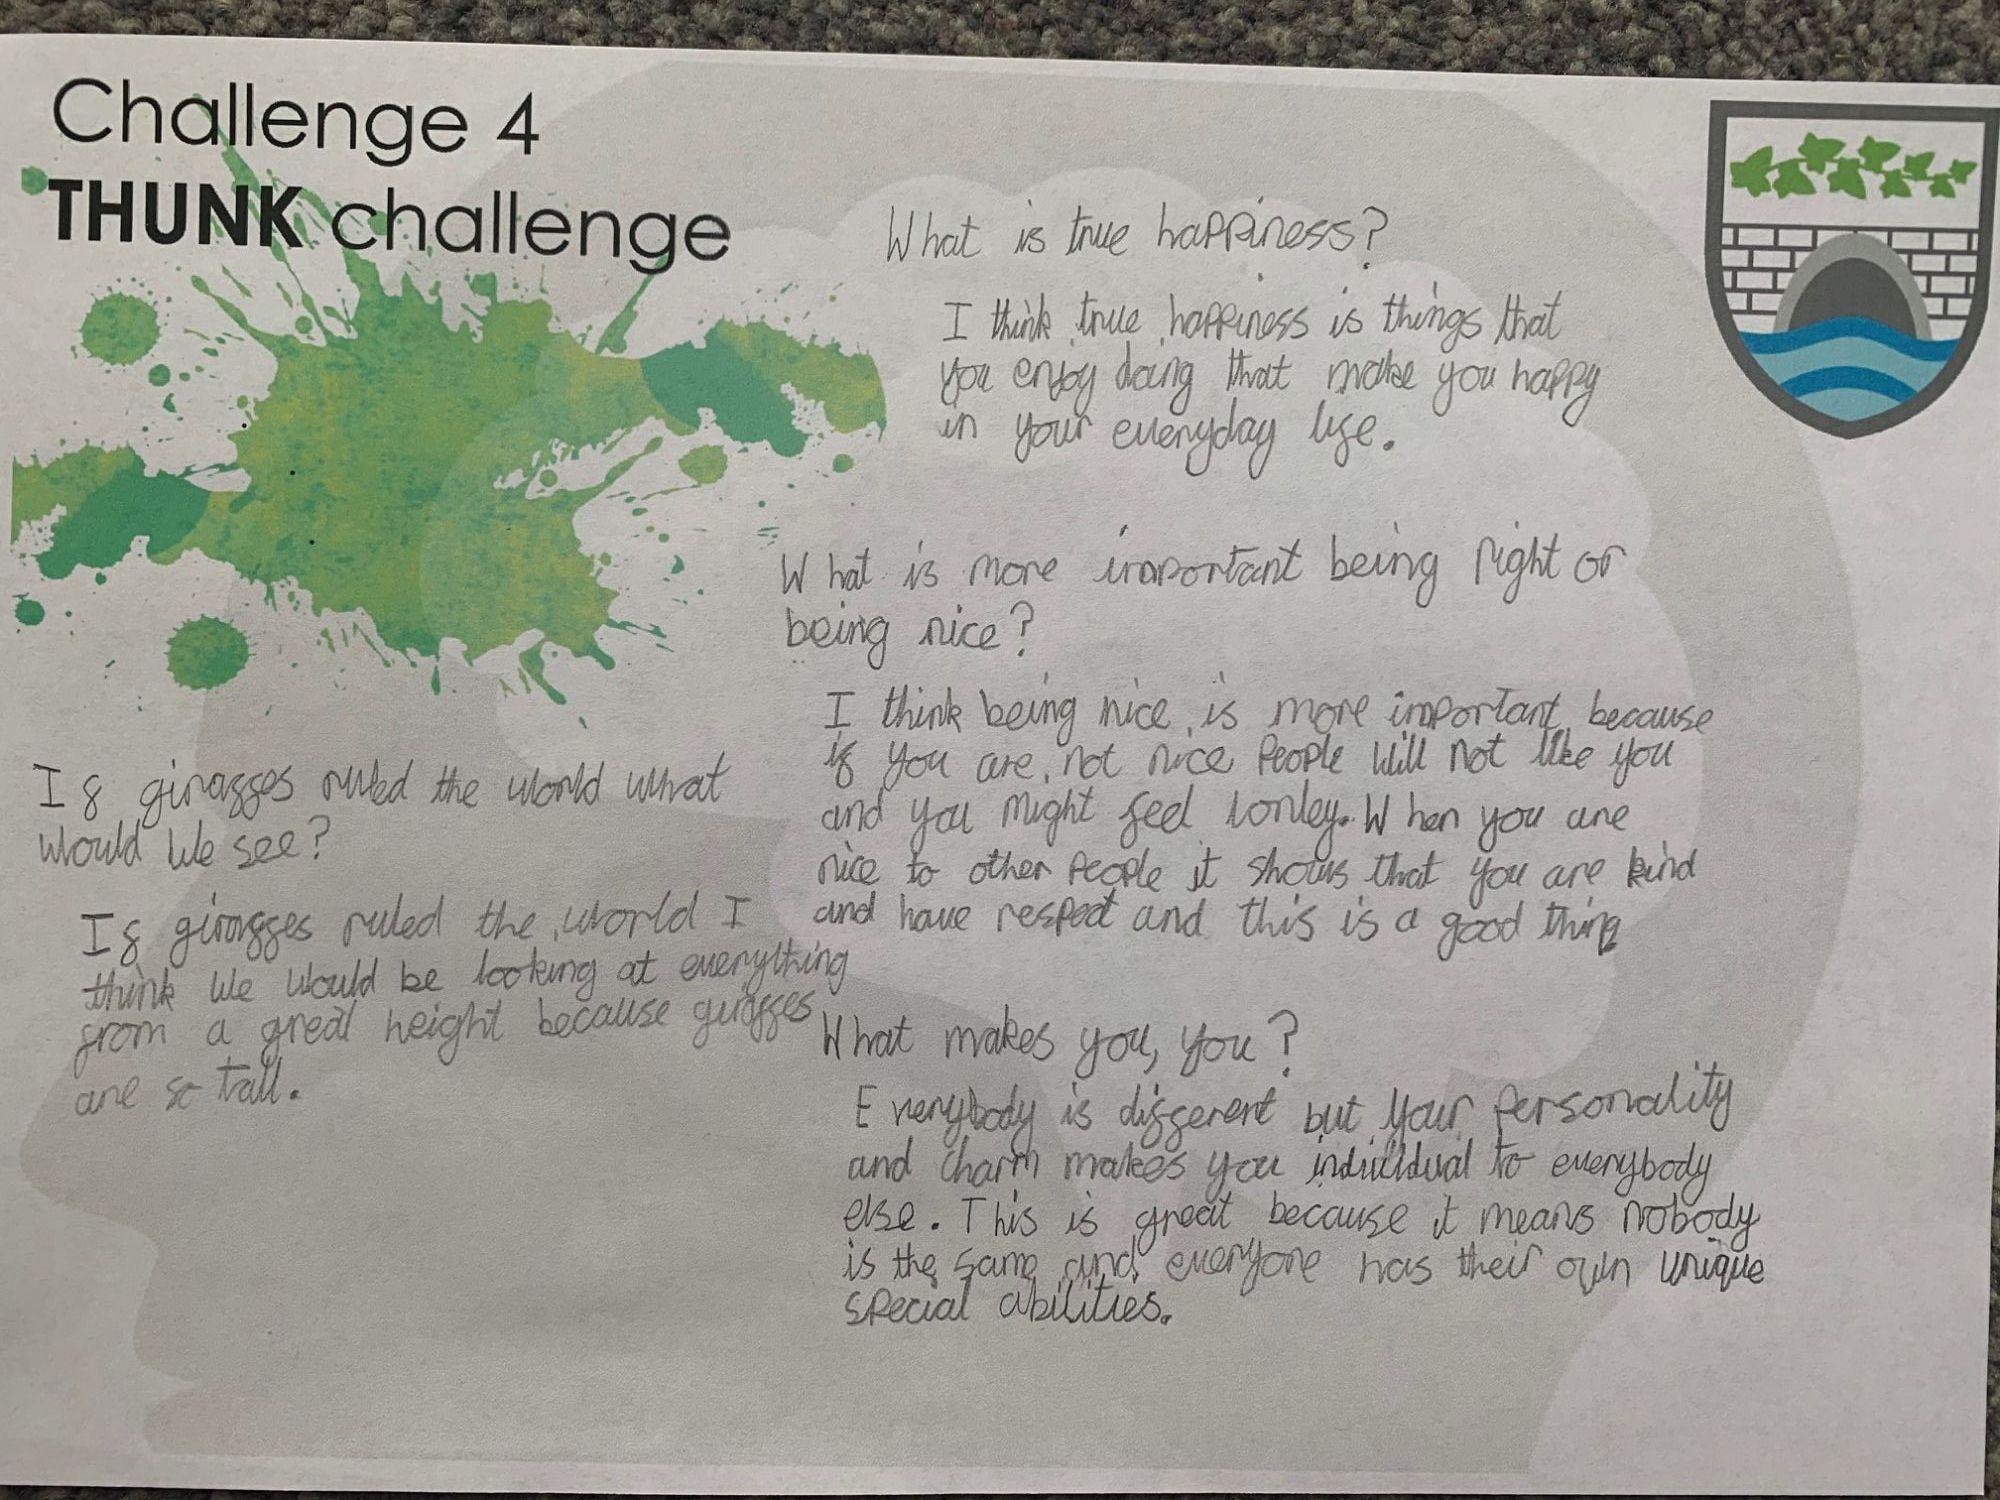 Challenge 4
THUNK challenge
What is true happiness?
I think true happiness is things that
you enjoy doing that make you happy
in your everyday life.
What is more important being right or
being nice?
I think being nice is more important because
if you are not nice people will not like you
and you might feel lonley. When you are
nice to other people it shows that you are kind
and have respect and this is a good thing
If giraffes ruled the world what
would we see?
If giraffes ruled the world I
think we would be looking at everything
from a great height because giraffes
are so tall.
What makes you, you?
Everybody is different but your personality
and charm makes you individual to everybody
else. This is great because it means nobody
is the same and everyone has their own unique
special abilities.